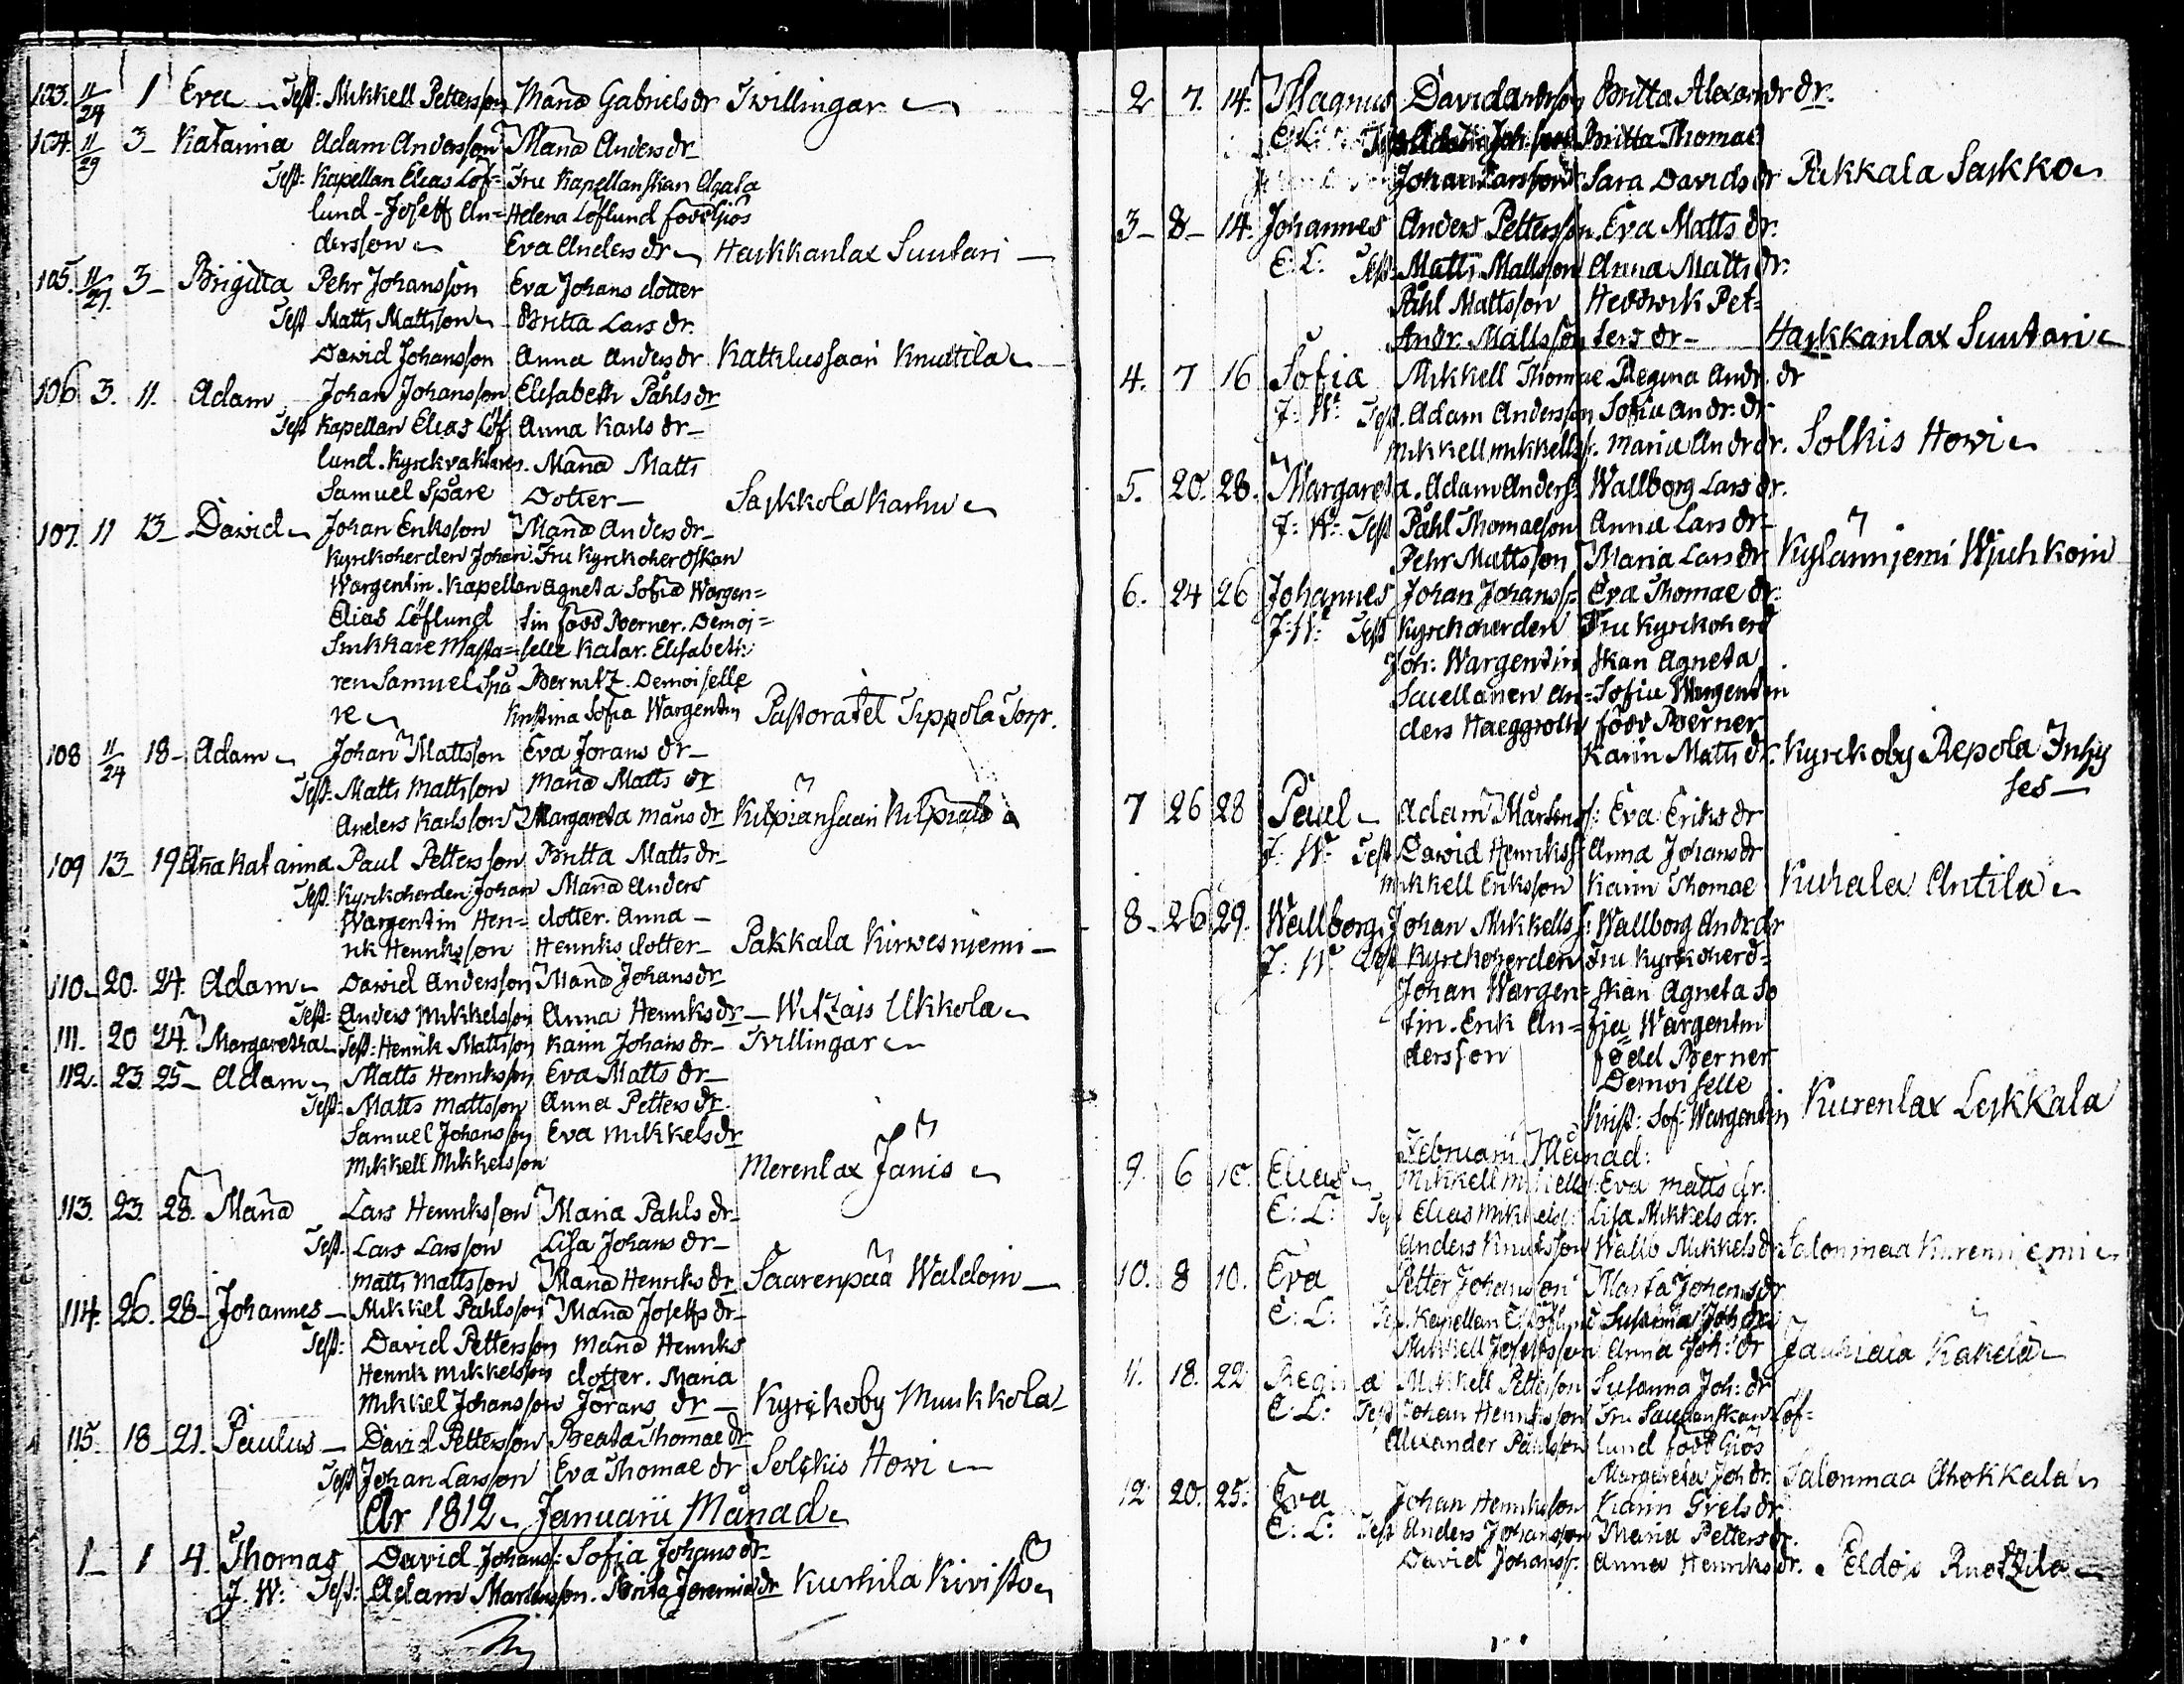 103. 11/29 1 Eva Test: Mikkell Pettersson Maria Gabriels dr Twillingar
104. 11/29 3 Katarina Adam Andersson Maria Anders dr
Test: Kapellan Elias Löf= Fru Kapellanskan Agata
lund - Joseff An= Helena Löflund född Giös
dersson Eva Anders dr Hatkkanlax Suutari
105. 11/27. 3 Brigitta Pehr Johansson Eva Johans dotter
Test Matts Mattsson Britta Lars dr.
David Johansson Anna Anders dr Kattilussaari Knuutila
106 3. 11. Adam Johan Johansson Elisabeth Påhls dr
Test Kapellan Elias Löf Anna Karls dr
lund. Kyrckvaktaren. Maria Matts
Samuel Spåre Dotter Sajkkola Karhu
107. 11 13 David Johan Eriksson Maria Anders dr
Kyrckoherden Johan Fru Kyrckoherdskan
Wargentin. Kapellan Agneta Sofia Wargen=
Elias Löflund tin född Berner. Demoi=
Smkkare Mästa= selle Katar. Elisabeth:
ren Samuel Spå Bernitz. Demoiselle
re Kristina Sofia Wargentin Pastoratet Sippola Torp.
108 11/24 18 Adam Johan Mattsson Eva Jörans dr
Test: Matts Mattsson Maria Matts dr
Anders Karlsson Margareta Måns dr Kilpiänsaari
109 13 19 Aña Katarina Paul Pettersson Britta Matts dr
Test Kyrkoherden Johan Maria Anders
Wargentin Hen= dotter. Anna
rik Henriksson Henriks dotter Pakkala Kirwesniemi
110. 20. 24. Adam David Andersson Maria Johans dr
Test: Anders Mikkelsson Anna Henriks dr Witzais Ukkola
111. 20 24. Margaretha Test: Henrik Mattsson Karin Johans dr Tvillingar
112. 23. 25 Adam Matts Henriksson Eva Matts dr
Test: Matts Mattsson Anna Petters dr.
Samuel Johansson Eva Mikkels dr
Mikkell Mikkelsson Merenlax Jänis
113. 23. 28. Maria Lars Henriksson Maria Påhls dr
Test: Lars Larsson Lisa Johans dr
Matts Mattsson Maria Henriks dr Saarenpää Waldoin
114. 26. 28 Johannes Mikkel Påhlsson Maria Joseffs dr
Test: David Pettersson Maria Henriks
Henrik Mikkelsson dotter. Maria
Mikkel Johansson Jörans dr Kyrckoby Munkkola
115. 18 21. Paulus David Pettersson Beata Thomae dr
Test Johan Larsson Eva Thomae dr Solckis Howi
År 1812. Januarii Månad
1 1 4. Thomas David Johans: Sofia Johans dr
J. W: Test: Adam Mårtensson. Brita Jeremiæ dr Kuhila Kivistö
2 7. 14. Magnus David Andersson Britta Alexander dr.
E: L: Britta Thomae
Johan Larsson Sara Davids dr Pakkala Sajkko
3 8 14. Johannes Anders Pettersson. Eva Matts dr.
E: L: Test: Matts Mattsson Anna Matts dr.
Påhl Mattsson Hedwik Pet=
Andr. Mattsson ters dr Hatkkanlax Suutari
4. 7 16 Sofia Mikkell Thomae Regina Andr. dr
J: W: Test. Adam Andersson Sofia Andr. dr
Mikkell Mikkells. Maria Andr dr. Solkis Howi
5. 20. 28. Margareta. Adam Anders: Wallborg Lars dr.
J: W: Test Påhl Thomaeson Anna Lars dr
Pehr Mattsson Maria Lars dr Kyläniemi Wjuhkoin
6. 24 26 Johannes Johan Johans: Eva Thomae dr.
J: W: Test Kyrckoherden Fru Kyrckoherd
Joh: Wargentin skan Agneta
An= Sofia Wargentin
ders Haeggroth född Berner
Karin Matts dr. Kyrckoby Repola Inhy
ses
7 26 28 Paul Adam Mårtens: Eva Eriks dr
J: W: Test David Henriks: Anna Johans dr
Mikkell Eriksson Karin Thomae Kuhala Antila
8 26 29. Wallborg. Johan Mikkells: Wallborg Andr dr
J: W Test Kyrckoherden Fru Kyrckoherd=
Johan Wargen= skan Agneta So
tin. Erik An= fia Wargentin
dersson född Berner
Demoiselle
Krist: Sof: Wargentin Kurenlax Lejkkala
Februarii Månad:
9. 6 10. Elias Mikkell Mikells: Eva Matts dr.
E: L: Test Elias Mikkels: Lisa Mikkels dr.
Anders Knutsson Wallb Mikkels dr Salonmaa Kurenniemi
10. 8 10. Eva Petter Johansson Marta Johans dr
E: L: Test. Kapellan E: Löflund Susanna Joh dr
Mikkell Josephsson Anna Joh: dr Jauhiala
11. 18. 22 Regina Mikkell Pettersson Susanna Joh: dr
E: L: Test Johan Henriksson Fru Löf=
Alexander Påhlsson lund född Giös
Margareta Joh dr. Salonmaa Ahokkala
12 20. 25. Eva Johan Henriksson Karin Grels dr
E: L: Test Anders Johansson Maria Petters dr.
David Johans: Anna Henriks dr. Peldois Ruotzila